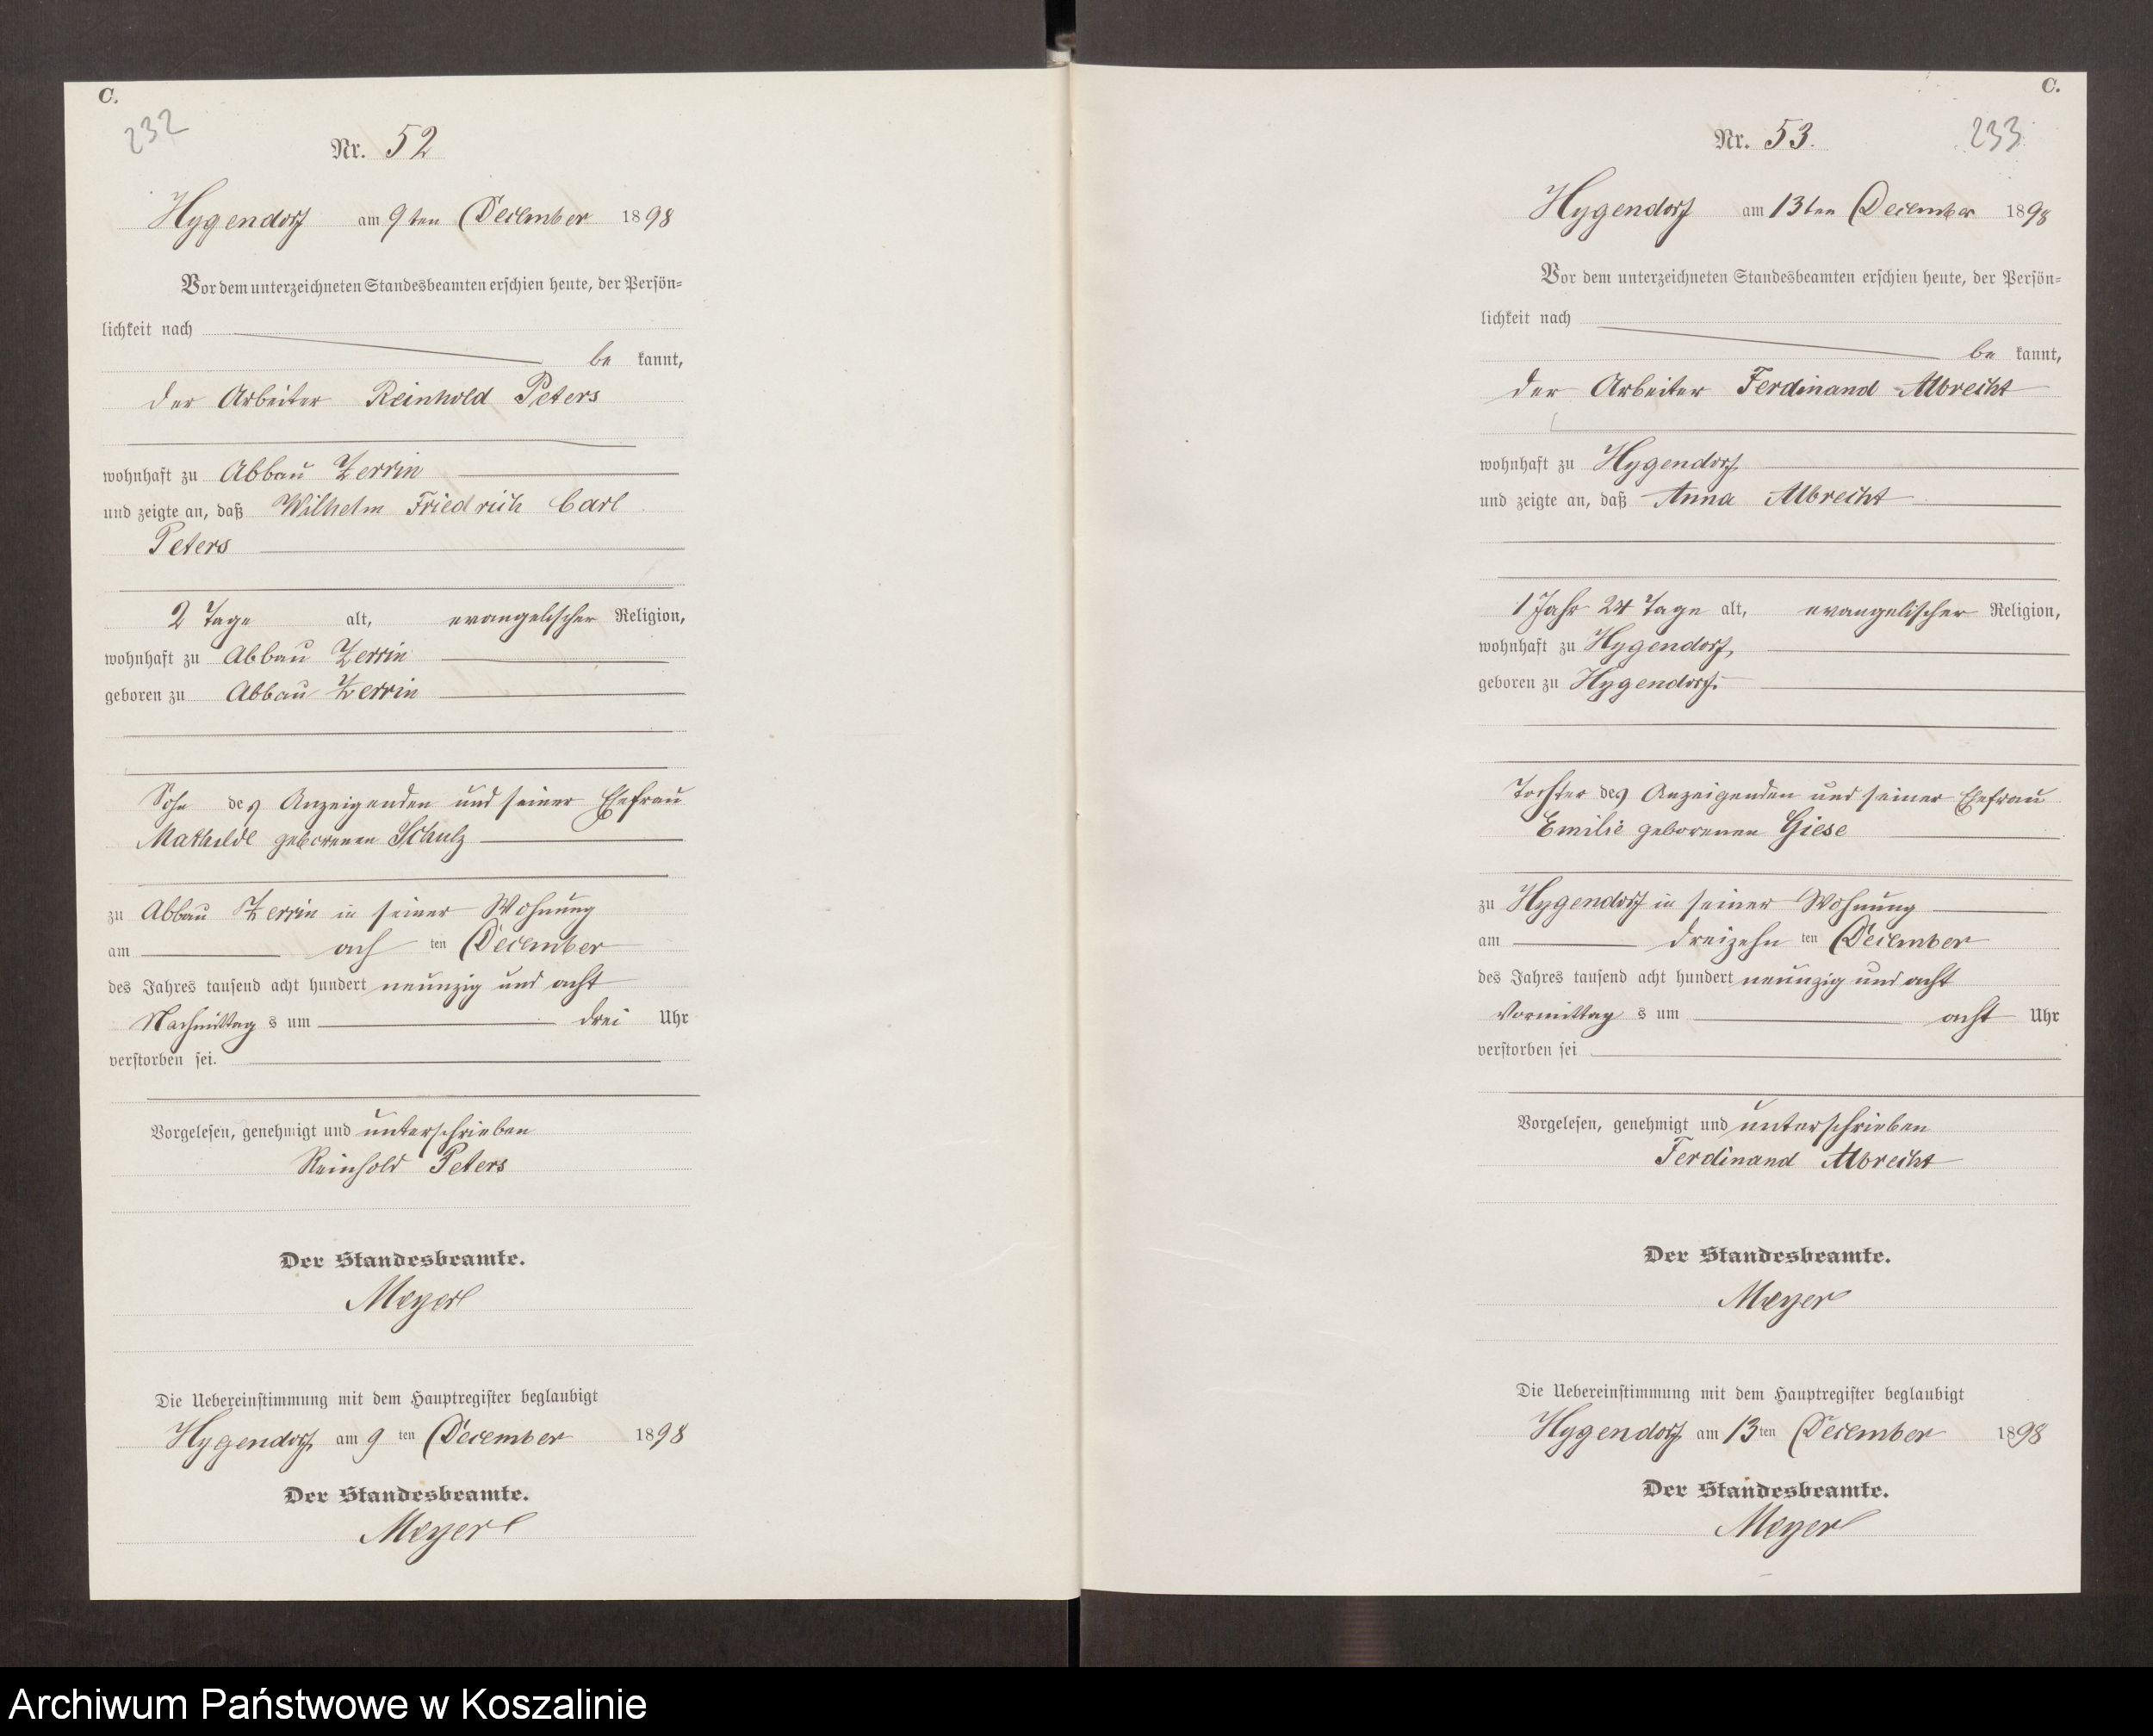 C.
232
Nr. 52
Hygendorf am 9ten December 1898
Vor dem unterzeichneten Standesbeamten erschien heute, der Persön-
lichkeit nach
be kannt,
der Arbeiter Reinhold Peters
wohnhaft zu Abbau Zerrin
und zeigte an, daß Wilhelm Friedrich Carl
Peters
2 Tage alt, evangelischer Religion,
wohnhaft zu Abbau Zerrin
geboren zu Abbau Zerrin
Sohn des Anzeigenden und seiner Ehefrau
Mathilde geborenen Schulz
zu Abbau Zerrin in seiner Wohnung
am ach ten December
des Jahres tausend acht hundert neunzig und acht
Nachmittag s um drei Uhr
verstorben sei.
Vorgelesen, genehmigt und unterschrieben
Reinhold Peters
Der Standesbeamte.
Meyer
Die Uebereinstimmung mit dem Hauptregister beglaubigt
Hygendorf am 9 ten December 1898
Der Standesbeamte.
Meyer
C.
233
Nr. 53.
Hygendorf am 13ten December 1898
Vor dem unterzeichneten Standesbeamten erschien heute, der Persön-
lichkeit nach
be kannt,
der Arbeiter Ferdinand Albrecht
wohnhaft zu Hygendorf
und zeigte an, daß Anna Albrecht
1 Jahr 24 Tage alt, evangelischer Religion,
wohnhaft zu Hygendorf,
geboren zu Hygendorf.
Tochter des Anzeigenden und seiner Ehefrau
Emilie geborenen Giese
zu Hygendorf in seiner Wohnung
am dreizehn ten December
des Jahres tausend acht hundert neunzig und acht
Vormittag s um acht Uhr
verstorben sei
Vorgelesen, genehmigt und unterschrieben
Ferdinand Albrecht
Der Standesbeamte.
Meyer
Die Uebereinstimmung mit dem Hauptregister beglaubigt
Hygendorf am 13 ten December 1898
Der Standesbeamte.
Meyer
Archiwum Państwowe w Koszalinie